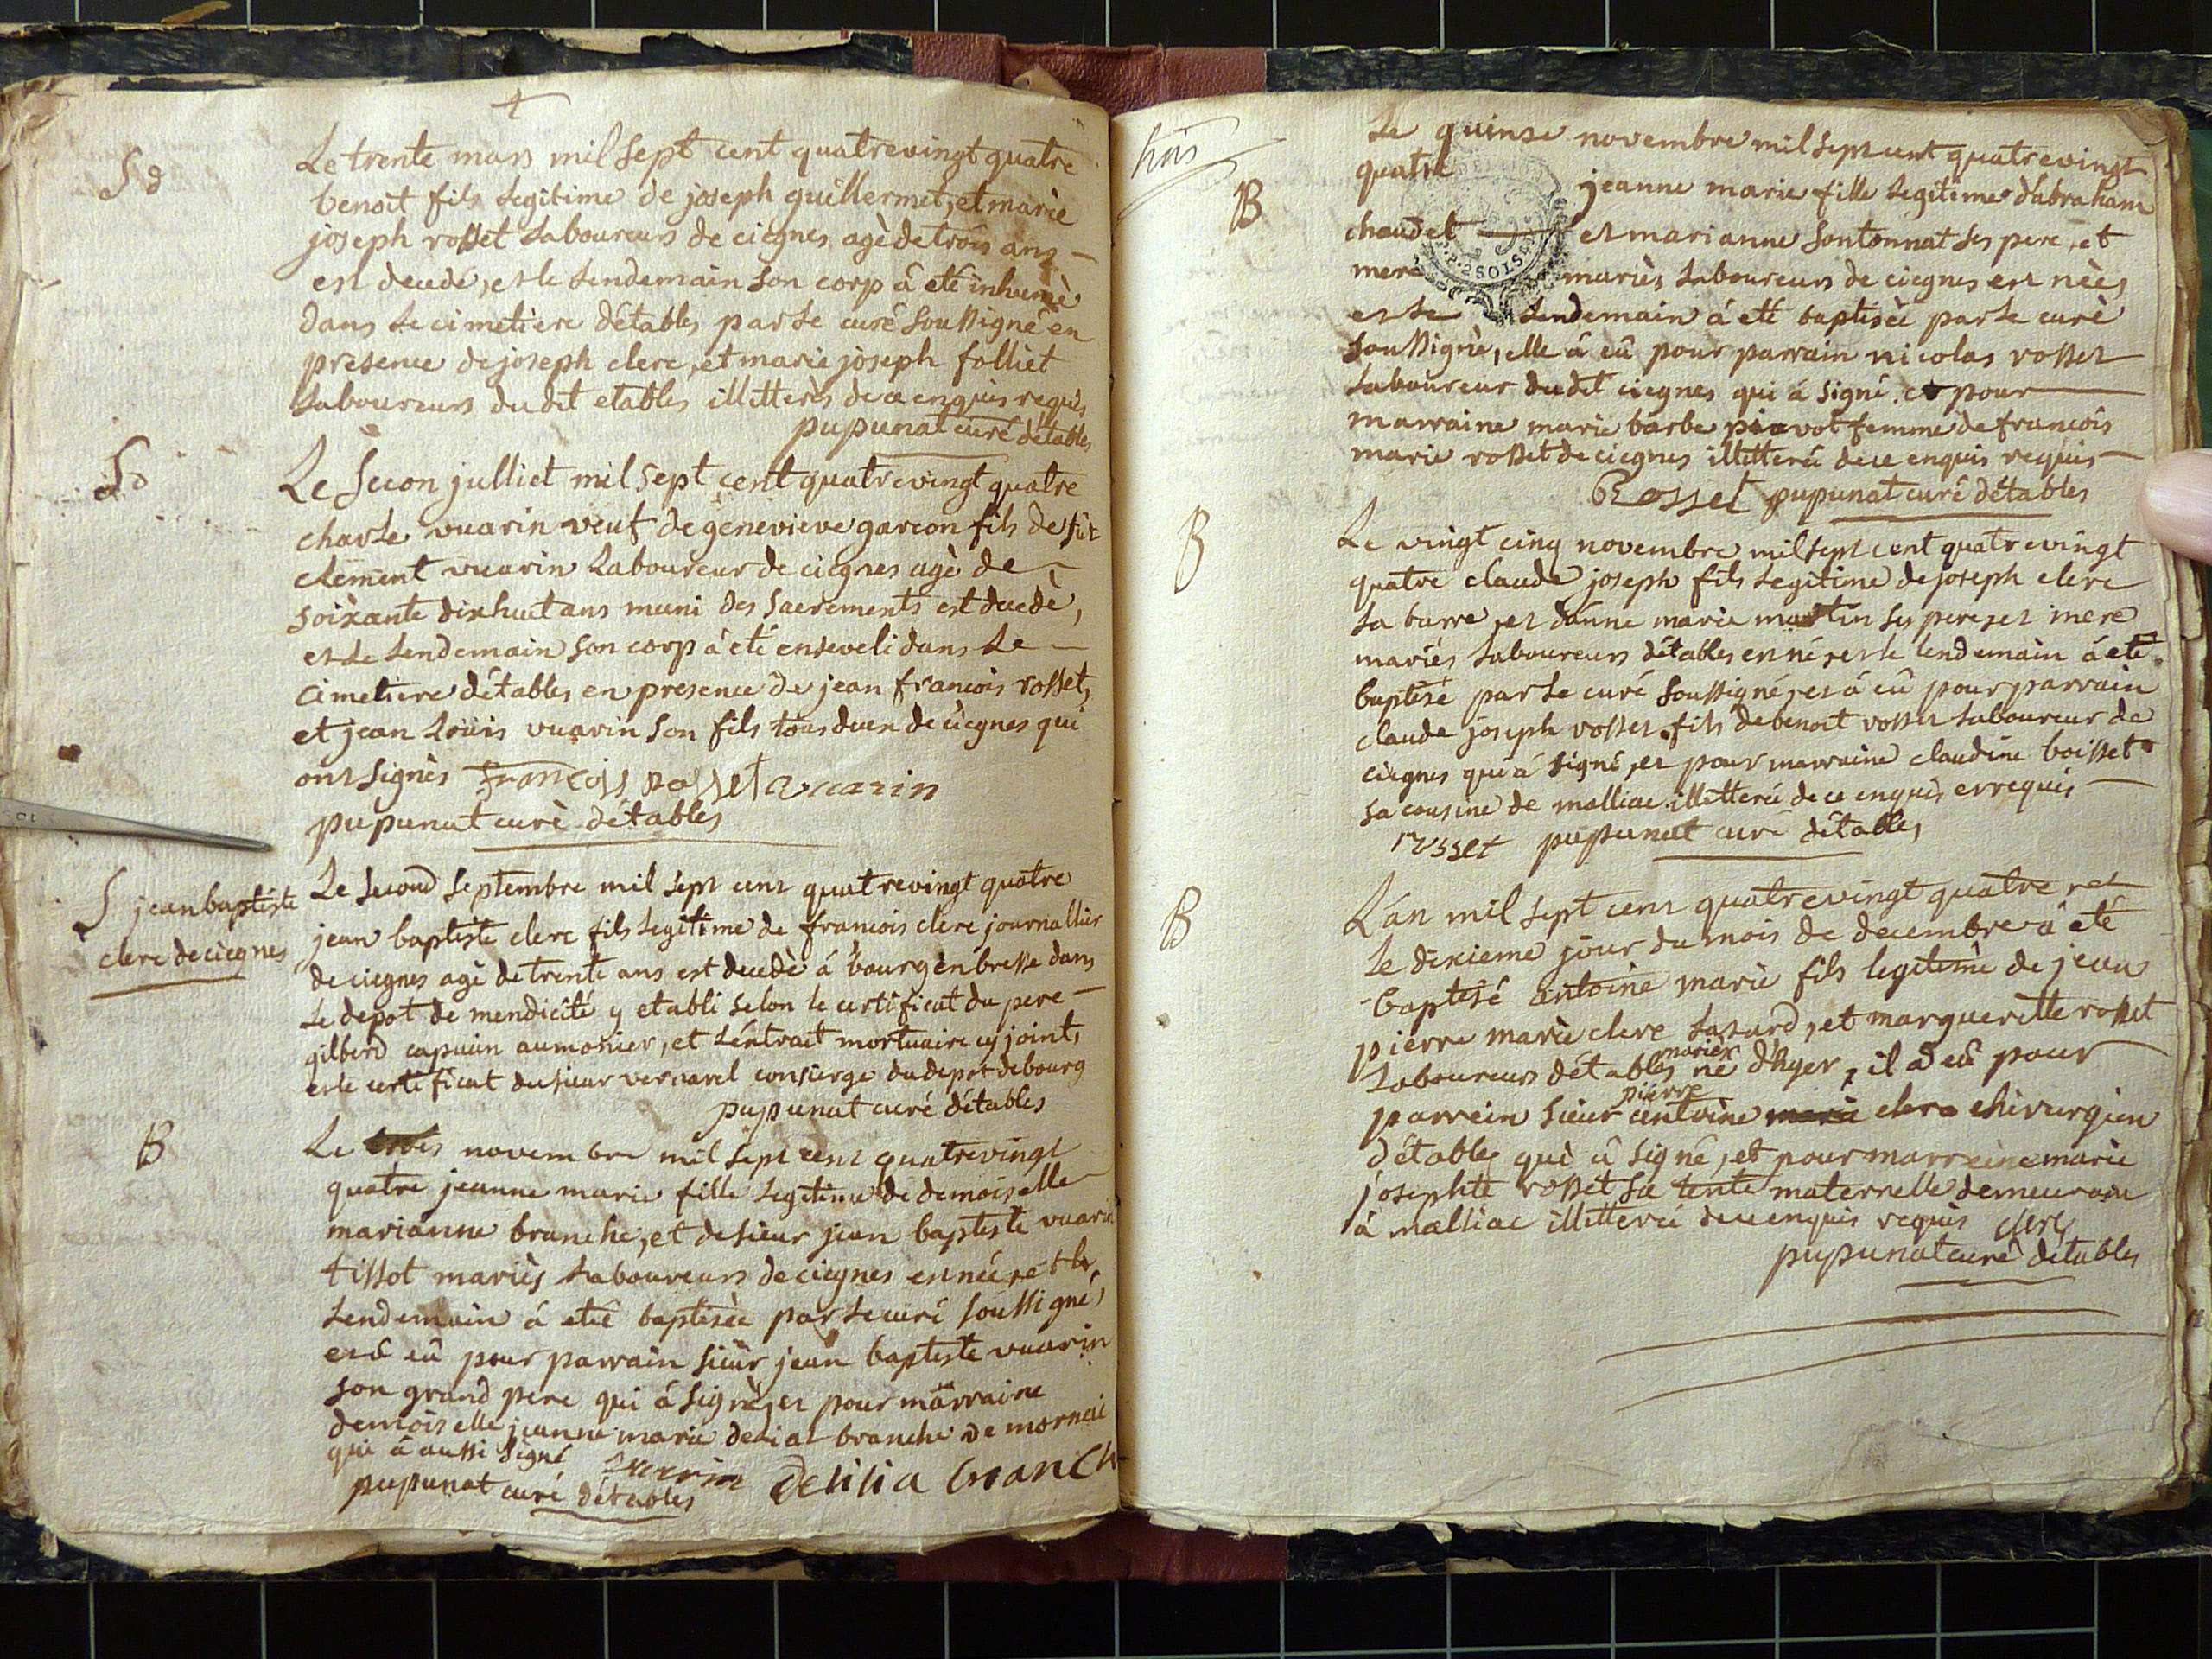 Sd
Le trente mars mil sept cent quatrevingt quatre
benoit fils legitime de joseph guillermet, et marie
joseph rosset laboureurs de ciegnes agè de trois ans
est decedé, et le lendemain son corp â eté inhumè
dans le cimetiere détables par le curé soussigné en
presence de joseph clerc, et marie joseph folliet
laboureurs dudit etables illitterès de ce enquis requis
pupunat curé détables
Sd
Le secon julliet mil sept cent quatrevingt quatre
charle vuarin veuf de genevieve garcon fils de fût
clement vuarin laboureur de ciegnes agè de
soixante dixhuit ans muni des sacrements est decedè,
et le lendemain son corp à eté enseveli dans le
cimetiere détables en presence de jean francois rosset,
et jean louis vuarin son fils tous deux de ciegnes qui
ont signès francois rosset vuarin
pupunat curè détables
S jean baptiste
clerc de ciegnes
Le second septembre mil sept cent quatrevingt quatre
jean baptiste clerc fils legitime de francois clerc journallier
de ciegnes agè de trente ans est decedè á bourg en bresse dans
le depot de mendicité y etabli selon le certificat du pere
gilberd capucin aumonier, et léxtrait mortuaire cy joint,
et le certificat du sieur vervarel consierge du depot de bourg
pupunat curé détables
B
Le trois novembre mil sept cent quatrevingt
quatre jeanne marie fille legitime de demoiselle
marianne branche, et de sieur jean baptiste vuarin
tissot mariès laboureurs de ciegnes est née, et le
lendemain á eté baptisèe par le curé soussigné,
et â eû pour parrain sieur jean baptiste vuarin
son grand pere qui á signè, et pour marraine
demoiselle jeanne marie branche de mornai
qui â aussi signé vuarin
pupunat curé détables
trois
B
Le quinse novembre mil sept cent quatrevingt
quatre jeanne marie fille legitime dabraham
chaudet et marianne sontonnat ses pere, et
mere mariès laboureurs de ciegnes est nèe,
et le lendemain á eté baptisèe par le curè
soussignè, elle á eû pour parrain nicolas rosset
laboureur dudit ciegnes qui á signé. et pour
marraine marie barbe femme de francois
marie rosset de ciegnes illitterée de ce enquis requis
Rosset pupunat curé détables
B
Le vingt cinq novembre mil sept cent quatrevingt
quatre claude joseph fils legitime de joseph clerc
la barre, et dánne marie martin ses pere, et mere
mariés laboureurs détables est né, et le lendemain á eté
baptisé par le curé soussigné, et á eû pour parrain
claude joseph rosset fils de benoit rosset laboureur de
ciegnes qui á signé, et pour marraine claudine boisset
sa cousine de malliac illitterée de ce enquis et requis
rosset pupunat curé détables
B
Lán mil sept cent quatrevingt quatre, et
le dixieme jour du mois de decembre á eté
baptisé antoine marie fils legitime de jean
pierre marie clerc lazard, et marguerittè rosset
mariés
laboureurs détables né dhyer, il a eû pour
pierre
parrein sieur antoine marie clerc chirurgien
détables qui â signé, et pour marreine marie
josephte rosset sa tente maternelle demeurant
à malliac illitterée de ce enquis requis clerc
pupunat curé détables